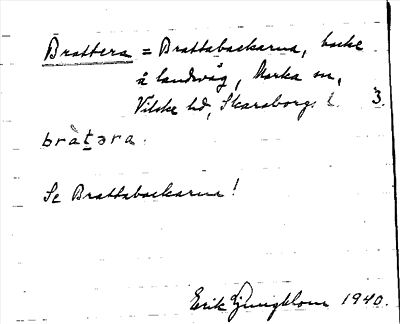 Brattera = Brattabackarna, backe
å landsväg, Marka sn,
Vilske hd, Skaraborgs l. 3.
bràt̲əra.
Se Brattabackarna!
Erik Ljungblom 1940.